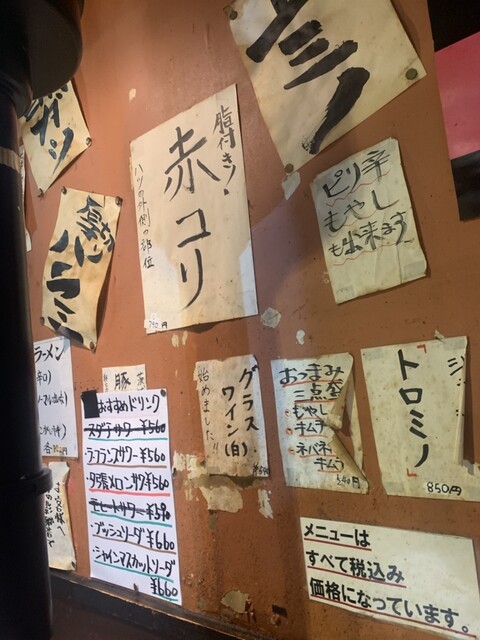 ミノ
脂付き!
赤コリ
ハツの外側の部位
790円
ピリ辛
もやし
も出来ます
厚切り
ハラミ
ラーメン
豚
おすすめドリンク
スダチサワー ¥560
ラ・フランスサワー ¥560
夕張メロンサワ ¥560
モヒートサワー ¥590
ブッシュソーダ ¥660
シャインマスカットソーダ
¥660
グラス
ワイン(白)
始めました!!
おつまみ
三点盛
・もやし
・キムチ
・ネバネバ
キムコ
540円
「トロミノ」
850円
メニューは
すべて税込み
価格になっています。